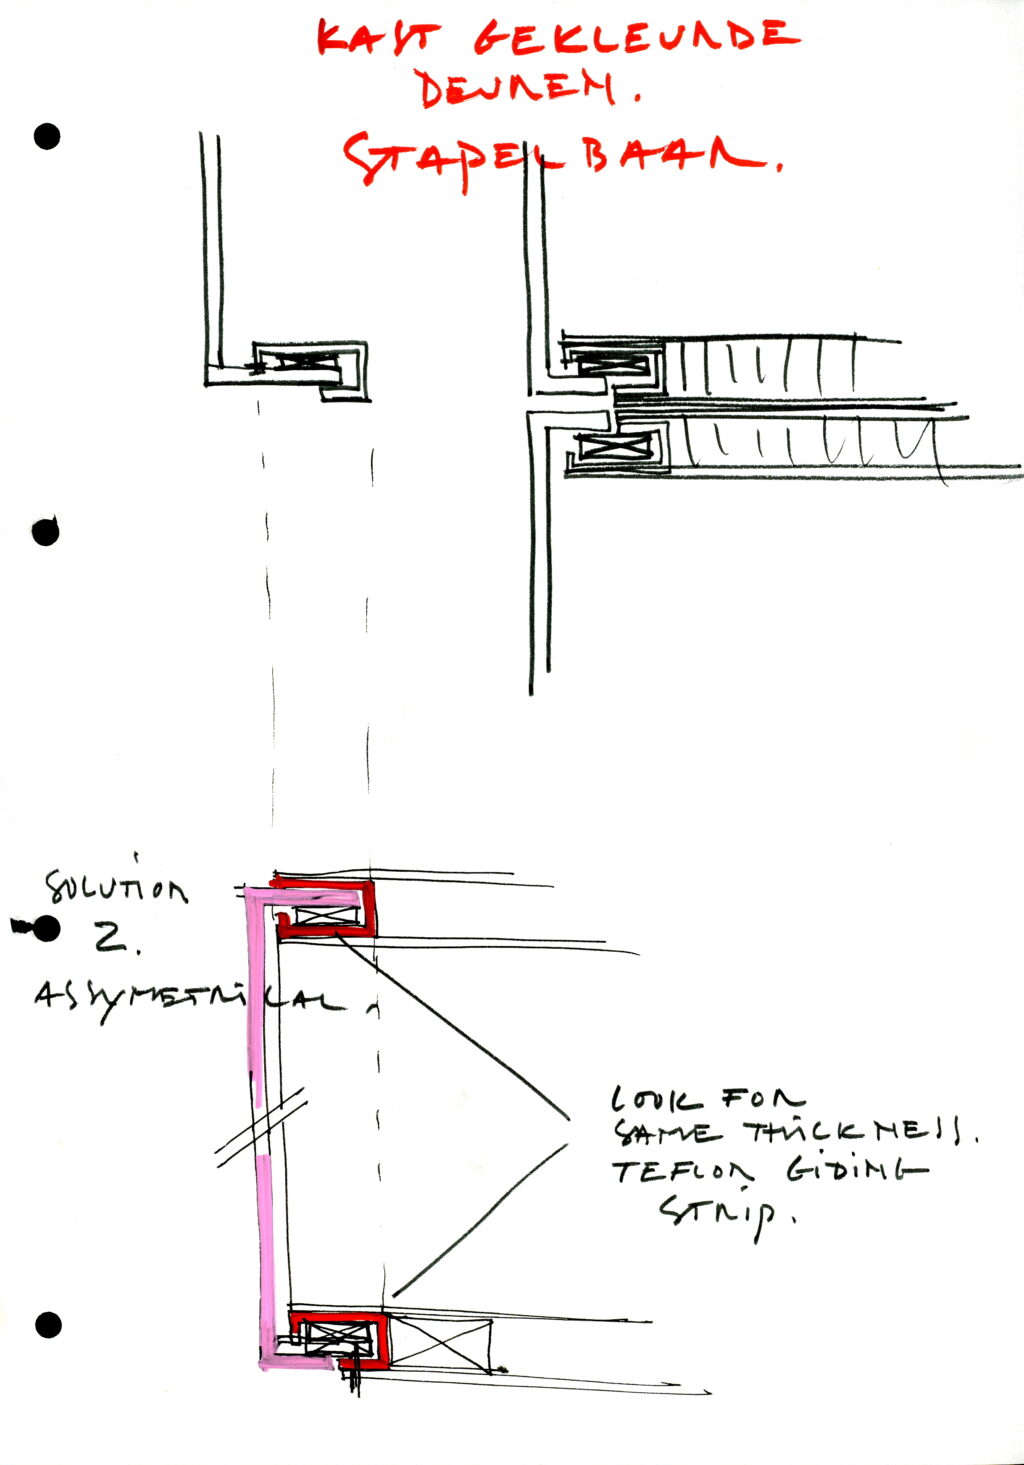 KAST GEKLEURDE
DEUREN.
STAPELBAAR.
SOLUTION
2.
ASSYMETRICAL
LOOK FOR
SAME THICKNESS.
TEFLON GIDING
STRIP.